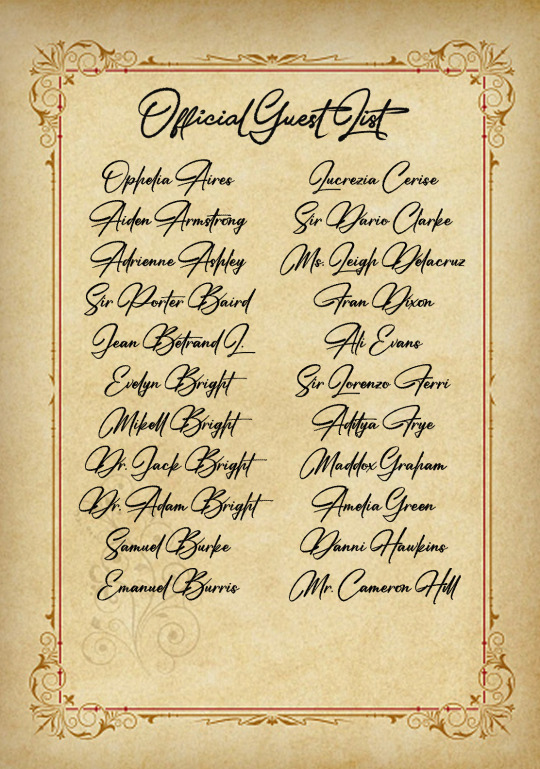 Official Guest List
Ophelia Aires
Aiden Armstrong
Adrienne Ashley
Sir Porter Baird
Jean Bétrand L.
Evelyn Bright
Mikell Bright
Dr. Jack Bright
Dr. Adam Bright
Samuel Burke
Emanuel Burris
Lucrezia Cerise
Sir Dario Clarke
Ms. Leigh Delacruz
Fran Dixon
Ali Evans
Sir Lorenzo Ferri
Aditya Frye
Maddox Graham
Amelia Green
Danni Hawkins
Mr. Cameron Hill